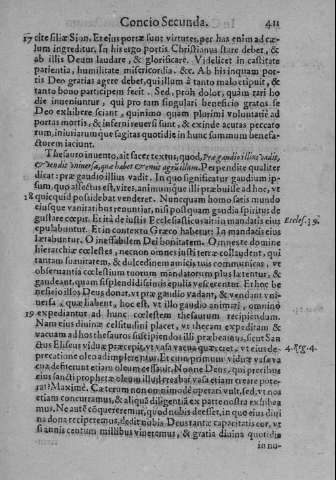 Concio Secunda. 411
17 cite filiæ Sion. Et eius portæ sunt virtutes, per has enim ad cæ-
lum ingreditur. In his ergo portis Christianus stare debet, &
ab illis Deum laudare, & glorificare. Videlicet in castitate
patientia, humilitate misericordia. &c. Ab his inquam por-
tis Deo gratias agere debet, qui illum à tanto malo eripuit, &
tanto bono participem fecit. Sed, proh dolor, quàm rari ho
die inueniuntur, qui pro tam singulari beneficio gratos se
Deo exhibere sciant, quinimo quam plurimi voluntarie ad
portas mortis, & inferni reuersi sunt, & exinde acutas peccato
rum, iniuriarumque sagitas quotidie in hunc summum benefa-
ctorem iaciunt.
Thesauro inuento, ait sacer textus, quod, Præ gaudio illius vadit,
& vendit vniuersa, quæ habet & emit agrum illum. Perpendite qualiter
dicat: præ gaudio illius vadit. In quo significatur gaudium ip-
sum, quo affectus est, vires, animumque illi præbuisse ad hoc, vt
18 quicquid possidebat venderet. Nunquam homo satis mundo
eiusque vanitatibus renuntiat, nisi postquam gaudia spiritus de
gustare cœpit. Et ità de iustis Ecclesiasticus ait: in mandatis eius Eccles. 39.
epulabuntur. Et in contextu Græco habetur: In mandatis eius
lætabuntur. O ineffabilem Dei bonitatem. Omneste domine
hierarchiæ cœlestes, nec non omnes iusti in terra collaudent, qui
tantam suauitatem, & dulcedinem amicis tuis communicas, vt
obseruantia cœlestium tuorum mandatorum plus lætentur, &
gaudeant, quam si splendidissimis epulis vescerentur. Et hoc be
neficio illos Deus donat, vt præ gaudio vadant, & vendant vni-
uersa quæ habent, hoc est, vt illo gaudio animati, omnino
19 expediantur ad hunc cœlestem thesaurum recipiendum.
Nam eius diuinæ celsitudini placet, vt thecam expeditam &
vacuam ad hos thesauros suscipiendos illi præbeamus, sicut San
ctus Eliseus viduæ præcepit, vt vasa vacua quæreret, vt eius de- 4. Reg. 4.
precatione oleo adimplerentur. Et cum primum viduæ vasa va
cua defuerunt etiam oleum cessauit. Nonne Deus, qui precibus
eius sancti prophetæ oleum illud creabat vasa etiam creare pote-
rat? Maximè. Cæterum non omni modè operari vult, sed, vt nos
etiam concurramus, & aliquā diligentiā ex parte nostra exhibea
mus. Ne autē cōquereremur, quod nobis deesset, in quo eius diui
na dona reciperemus, dedit nobis Deus tantæ capacitatis cor, vt
si annis centum millibus viueremus, & gratia diuina quotidie
in no-